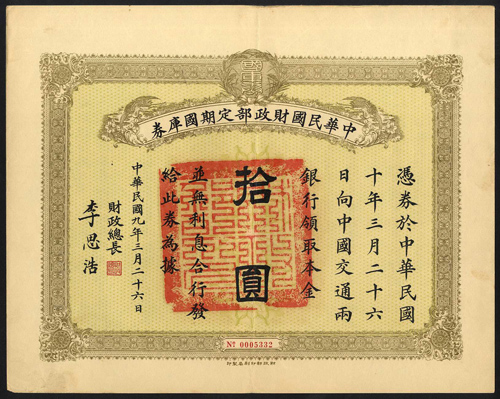 中華民國財政部定期國庫券
憑券於中華民國
十年三月二十六
日向中國交通兩
銀行領取本金
拾圓
並無利息合行發
給此券為據
中華民國九年三月二十六日
財政總長
李思浩
Nº 0005332